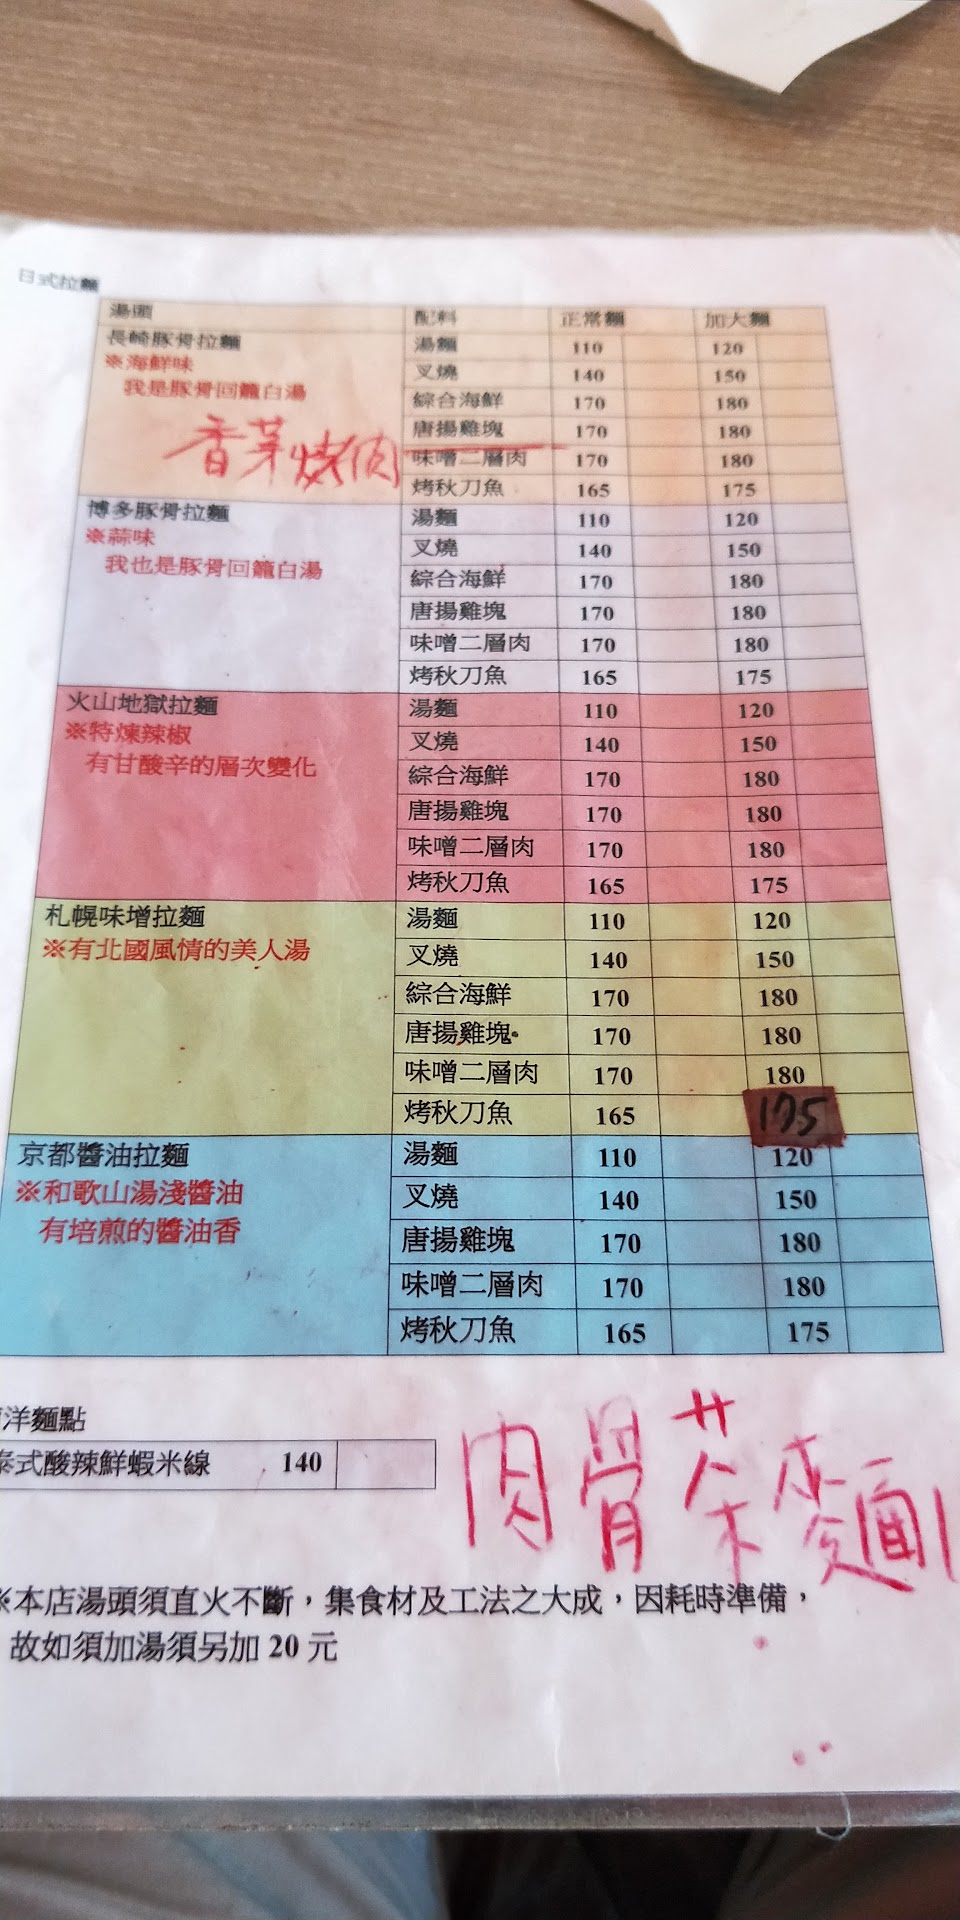 日式拉麵
湯頭 配料 正常麵 加大麵
長崎豚骨拉麵 湯麵 110 120
※海鮮味 叉燒 140 150
我是豚骨回籠白湯 綜合海鮮 170 180
唐揚雞塊 170 180
香茅燒肉 味噌二層肉 170 180
烤秋刀魚 165 175
博多豚骨拉麵 湯麵 110 120
※蒜味 叉燒 140 150
我也是豚骨回籠白湯 綜合海鮮 170 180
唐揚雞塊 170 180
味噌二層肉 170 180
烤秋刀魚 165 175
火山地獄拉麵 湯麵 110 120
※特煉辣椒 叉燒 140 150
有甘酸辛的層次變化 綜合海鮮 170 180
唐揚雞塊 170 180
味噌二層肉 170 180
烤秋刀魚 165 175
札幌味增拉麵 湯麵 110 120
※有北國風情的美人湯 叉燒 140 150
綜合海鮮 170 180
唐揚雞塊 170 180
味噌二層肉 170 180
烤秋刀魚 165 175
京都醬油拉麵 湯麵 110 120
※和歌山湯淺醬油 叉燒 140 150
有培煎的醬油香 唐揚雞塊 170 180
味噌二層肉 170 180
烤秋刀魚 165 175
洋麵點
泰式酸辣鮮蝦米線 140
肉骨茶麵
※本店湯頭須直火不斷，集食材及工法之大成，因耗時準備，
故如須加湯須另加 20 元